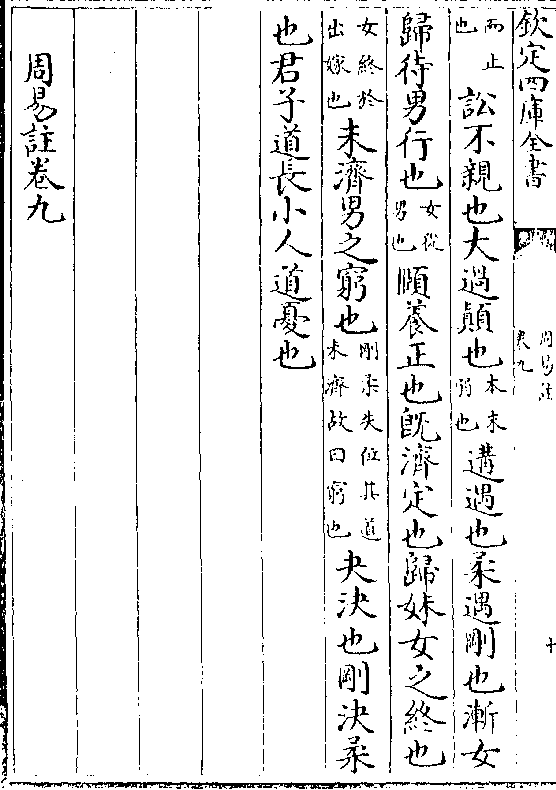 欽定四庫全書
周易註
卷九
十
而止
也
訟不親也大過顛也
本末
弱也
遘遇也柔遇剛也漸女
歸待男行也
女從
男也
頤養正也旣濟定也歸妹女之終也
女終於
出嫁也
未濟男之窮也
剛柔失位其道
未濟故曰窮也
夬決也剛決柔
也君子道長小人道憂也
周易註卷九